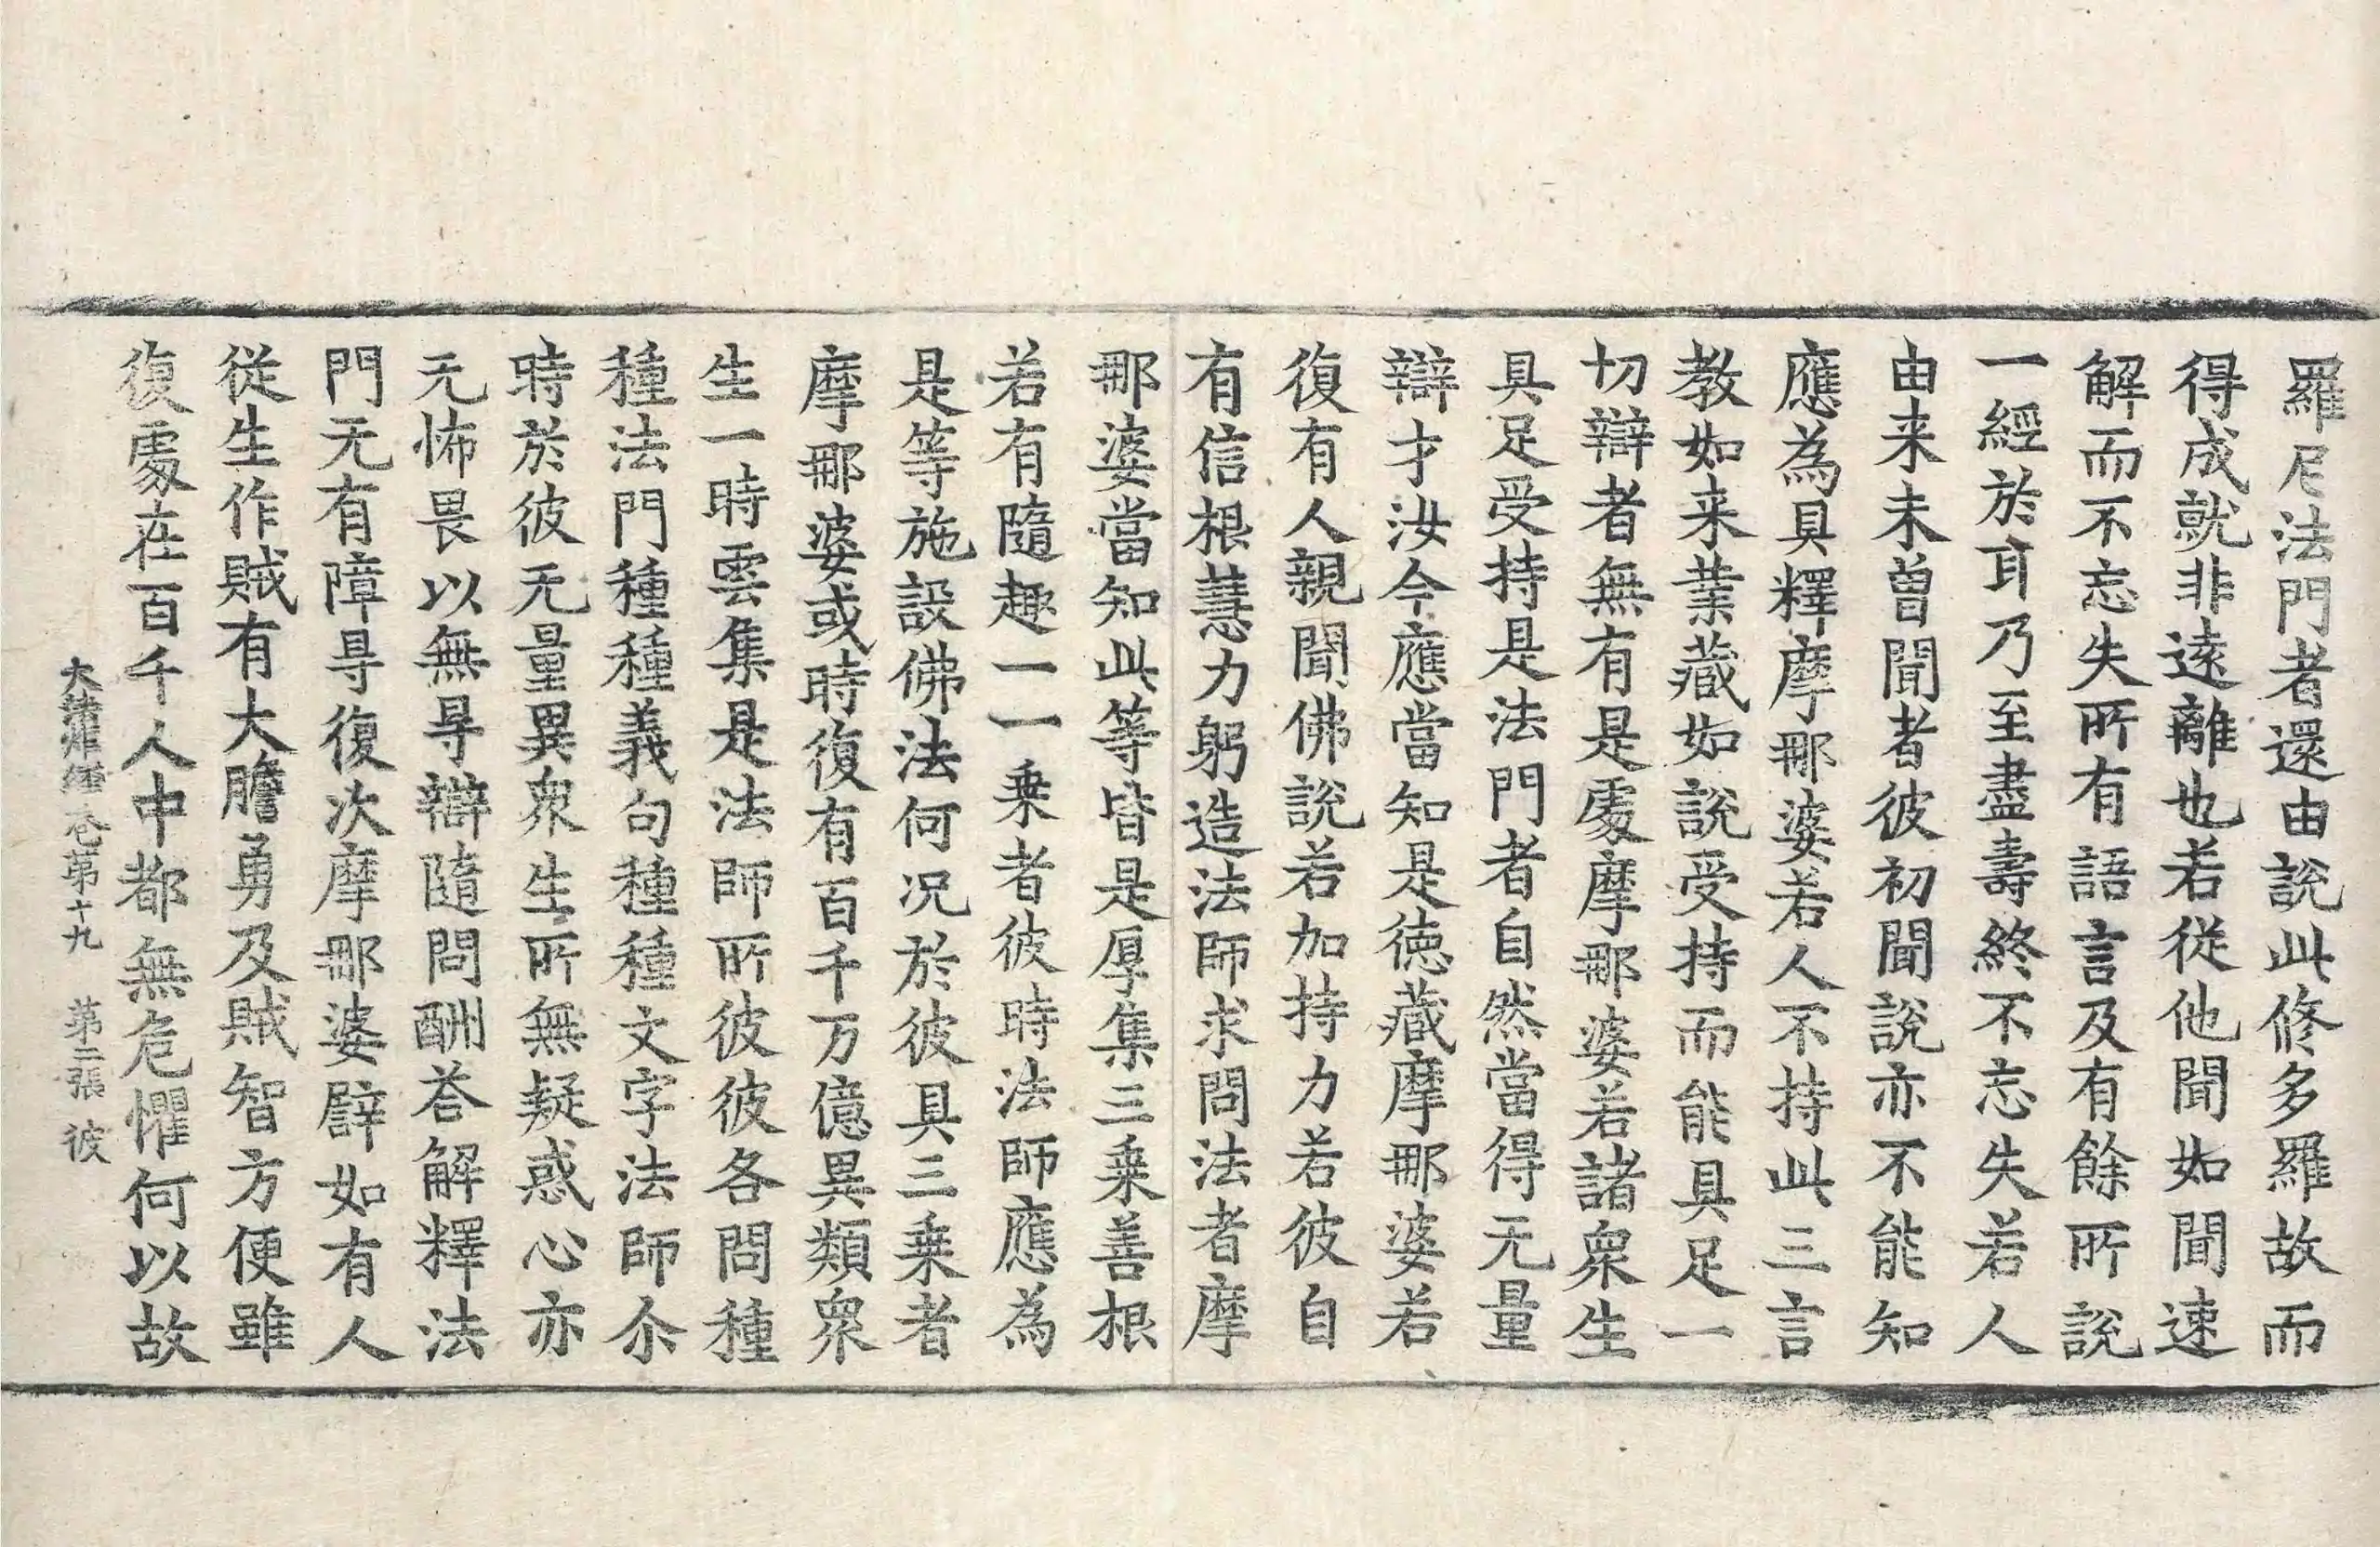 羅尼法門者還由說此修多羅故而
得成就非遠離也若從他聞如聞速
解而不忘失所有語言及有餘所說
一經於耳乃至盡壽終不忘失若人
由来未曾聞者彼初聞說亦不能知
應為具釋摩那婆若人不持此三言
教如来業藏如說受持而能具足一
切辯者無有是處摩那婆若諸衆生
具足受持是法門者自然當得无量
辯才汝今應當知是德藏摩那婆若
復有人親聞佛說若加持力若彼自
有信根慧力躬造法師求問法者摩
那婆當知此等皆是厚集三乗善根
若有隨趣一一乗者彼時法師應為
是等施設佛法何况於彼具三乗者
摩那婆或時復有百千万億異類衆
生一時雲集是法師所彼彼各問種
種法門種種義句種種文字法師尒
時於彼无量異衆生所無疑惑心亦
无怖畏以無㝵辯隨問酬荅解釋法
門无有障㝵復次摩那婆譬如有人
從生作賊有大膽勇及賊智方便雖
復處在百千人中都無危懼何以故
大法炬經卷第十九 第二張 彼